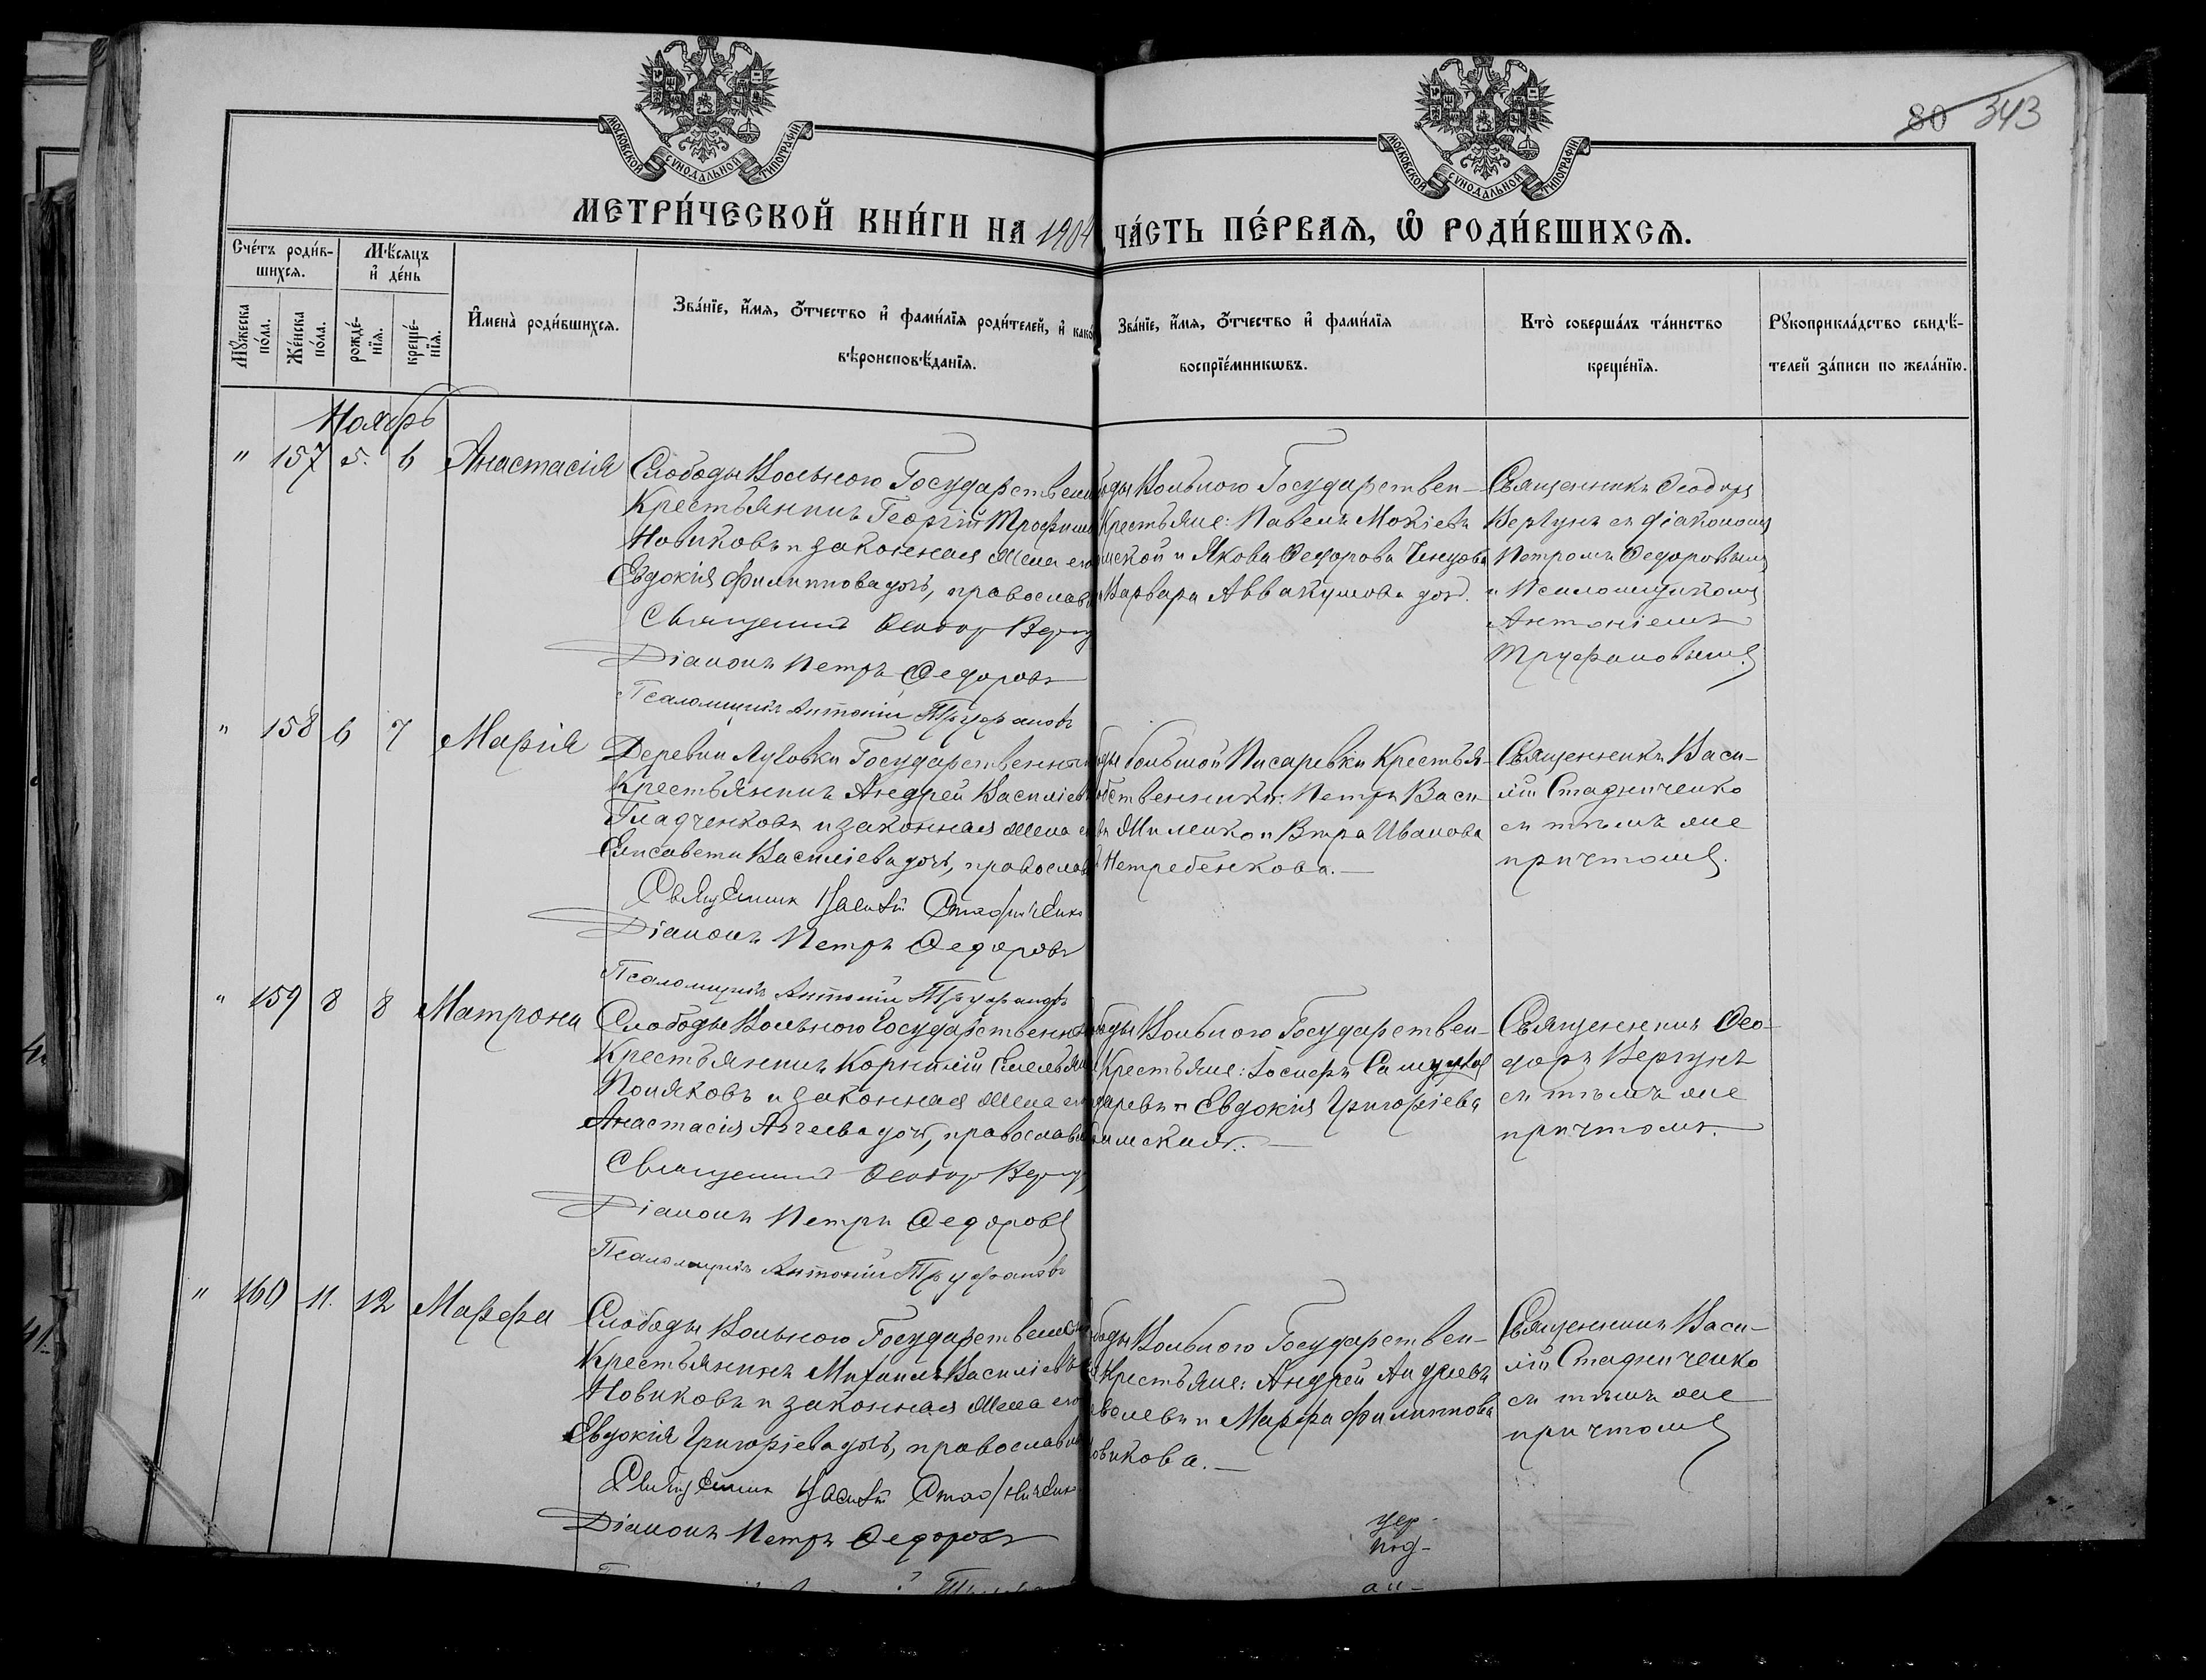 МОСКОВСКОЙ СѴНОДАЛЬНОЙ ТИПОГРАФІИ
МОСКОВСКОЙ СѴНОДАЛЬНОЙ ТИПОГРАФІИ
80 343
МЕТРИ́ЧЕСКОЙ КНИ́ГИ НА 1904
ЧА́СТЬ ПЕ́РВАѦ, Ѡ РОДИ́ВШИХСѦ.
Сче́тъ роди́в-
шихсѧ.
Мѣ́сѧцъ
и де́нь
Мꙋ́жеска
по́ла.
Же́нска
по́ла.
рожде́-
нїѧ.
креще́-
нїѧ.
Имена̀ роди́вшихсѧ.
Зва́нїе, и́мѧ, ѻ́тчество и фами́лїѧ роди́телей, и како́
вѣроисповѣ́данїѧ.
Зва́нїе, и́мѧ, ѻ́тчество и фами́лїѧ
воспрїе́мникѡвъ.
Кто̀ соверша́лъ та́инство
креще́нїѧ.
Рꙋкоприкла́дство свидѣ́-
телей за́писи по жела́нїю.
Ноябрь
" 157 5. 6 Анастасія
Слободы Вольного Государствен
Крестьянинъ Георгій Трофим
Новиковъ и законная жена его
Евдокія Филиппова дочь, православ
Священник Феодор Вергу
Діаконъ Петръ Федоровъ
Псаломщикъ Антоній Труфановъ
оды Вольного Государствен-
Крестьяне: Павелъ Мокіевъ
ской и Якова Федорова
Варвара Аввакумова доч.
Священникъ Феодоръ
Вергунъ съ діакономъ
Петромъ Федоровымъ
и Псаломщикомъ
Антоніемъ
Труфановымъ.
" 158 6 7 Марія
Деревни Луговки Государственн
Крестьянинъ Андрей Василіев
Гладченковъ и законная жена е
Елисавета Василіева дочь, православ
Священник Василій Стадниченко
Діаконъ Петръ Федоровъ
Псаломщикъ Антоній Труфановъ
оды большой Писаревки Крестья-
обственники: Петръ Васи-
въ Миленко и Вѣра Иванова
Нетребенкова.
Священникъ Васи-
лій Стадниченко
съ тѣмъ же
причтомъ.
" 159 8 8 Матрона
Слободы Вольного Государственн
Крестьянинъ Корнилій Емельян
Поляковъ и законная жена его
Анастасія Аггеева дочь, православ
Священник Феодор Вергу
Діаконъ Петръ Федоровъ
Псаломщикъ Антоній Труфановъ
боды Вольного Государствен-
Крестьяне: Іосифъ
даревъ и Евдокія Григоріева
имская.
Священникъ Фео-
доръ Вергунъ
съ тѣмъ же
причтомъ.
" 160 11. 12 Марфа
Слободы Вольного Государствен
Крестьянинъ Михаилъ Василіевъ
Новиковъ и законная жена его
Евдокія Григоріева дочь, православ
Священник Василій Стадниченко
Діаконъ Петръ Федоровъ
боды Вольного Государствен-
Крестьяне: Андрей Андреевъ
и Марфа Филиппова
овикова.
Священникъ Васи-
лій Стадниченко
съ тѣмъ же
причтомъ